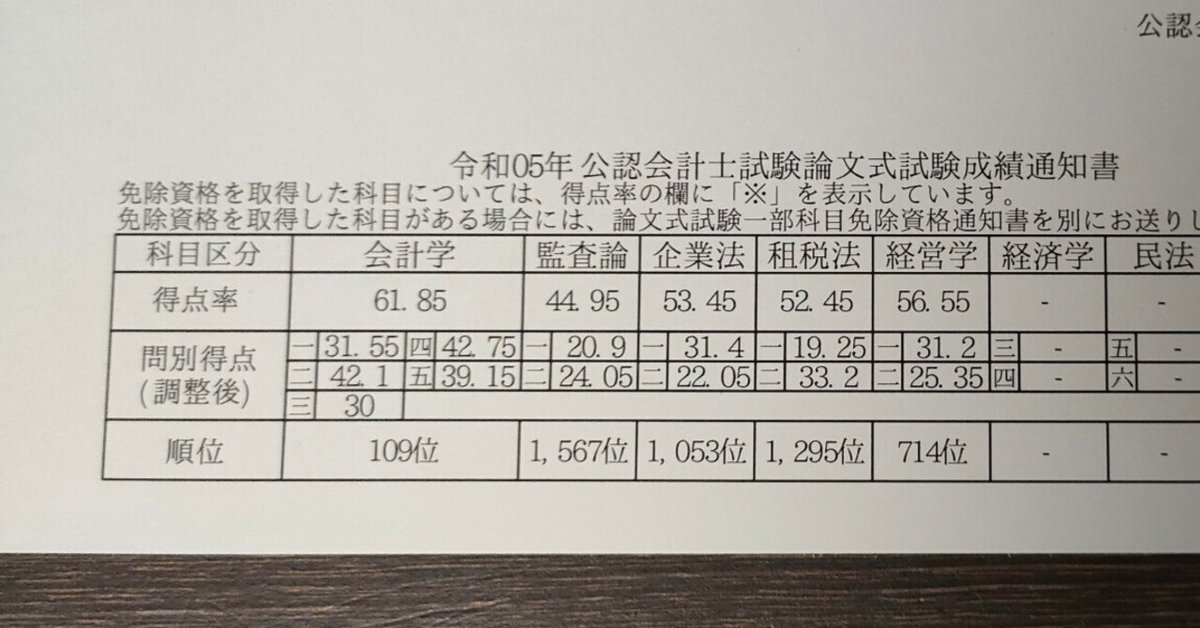 公認
令和05年 公認会計士試験論文式試験成績通知書
免除資格を取得した科目については、得点率の欄に「※」を表示しています。
免除資格を取得した科目がある場合には、論文式試験一部科目免除資格通知書を別にお送りし
科目区分 会計学 監査論 企業法 租税法 経営学 経済学 民法
得点率 61.85 44.95 53.45 52.45 56.55 - -
問別得点 一 31.55 四 42.75 一 20.9 一 31.4 一 19.25 一 31.2 三 - 五 -
(調整後) 二 42.1 五 39.15 二 24.05 二 22.05 二 33.2 二 25.35 四 - 六 -
三 30
順位 109位 1,567位 1,053位 1,295位 714位 - -